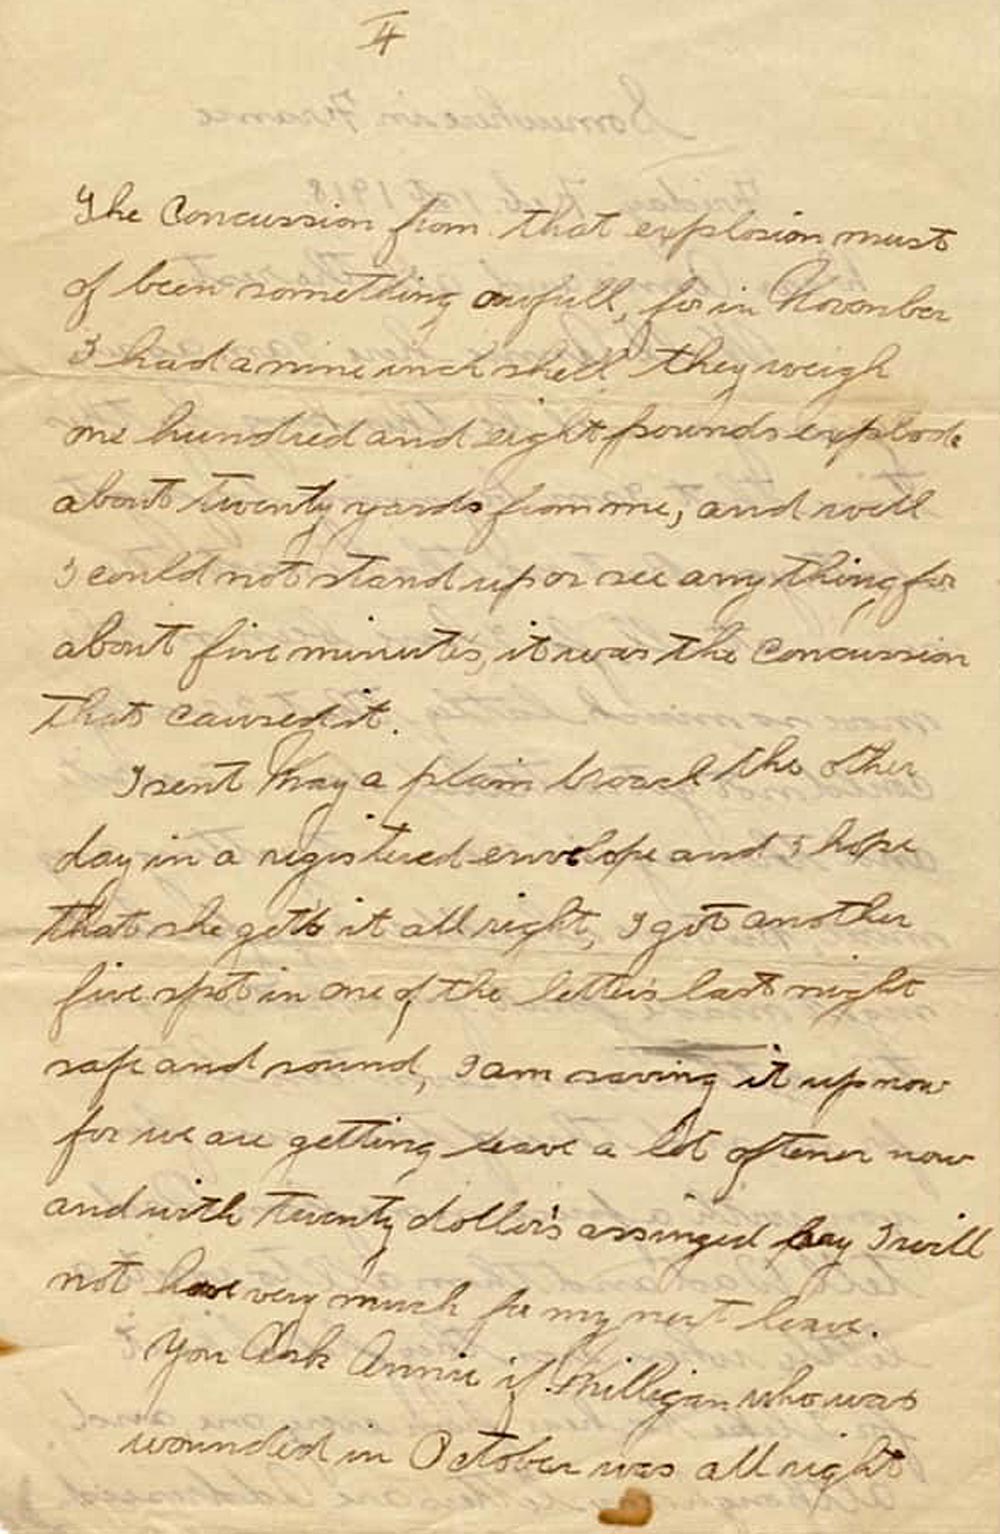 II
The Concussion from that explosion must
of been something awfull, for in November
I had a nine inch shell they weigh
one hundred and eight pounds explode
about twenty yards from me, and well
I could not stand up or see any thing for
about five minutes, it was the concussion
that caused it.
I sent May a plain broach the other
day in a registered envelope and I hope
that she gets it all right, I got another
five spot in one of the letters last night
safe and sound, I am saving it up now
for we are getting leave a lot oftener now
and with twenty dollars assinged pay I will
not have very much for my next leave.
You Ask Annie if Milligan who was
wounded in October was all right